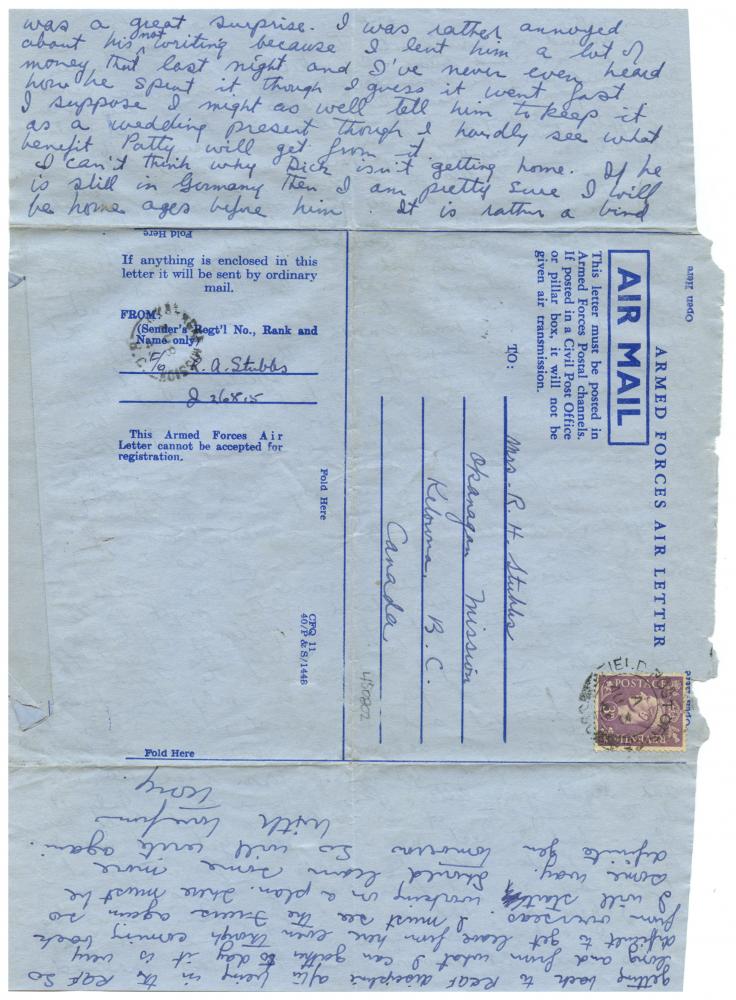 was a great surprise. I was rather annoyed
about his not writing because I lent him a lot of
money that last night and I've never even heard
how he spent it though I guess it went fast
I suppose I might as well tell him to keep it
as a wedding present though I hardly see what
benefit Patty will get from it.
I can't think why Dick isn't getting home. If he
is still in Germany then I am pretty sure I will
be home ages before him. It is rather a bind
getting back to RCAF discipline after being in the RAF so
long and from what I can gather to day it is very
difficult to get leave from here even though coming back
from overseas. I must see the Trues again so
I will start working on a plan. There must be
some way. Should learn some more
definite gen tomorrow so will write again.
With love from
Tony
Fold Here
If anything is enclosed in this
letter it will be sent by ordinary
mail.
FROM:
(Sender's Regt'l No., Rank and
Name only)
F/O R. A. Stubbs
J 26815
This Armed Forces Air
Letter cannot be accepted for
registration.
Fold Here
CFQ 11
40/P & S/1448
Fold Here
Open Here
ARMED FORCES AIR LETTER
AIR MAIL
This letter must be posted in
Armed Forces Postal channels.
If posted in a Civil Post Office
or pillar box, it will not be
given air transmission.
TO:
Mrs. R. H. Stubbs
Okanagan Mission
Kelowna, B.C.
Canada
450802
FIELD POST
POSTAGE
REVENUE